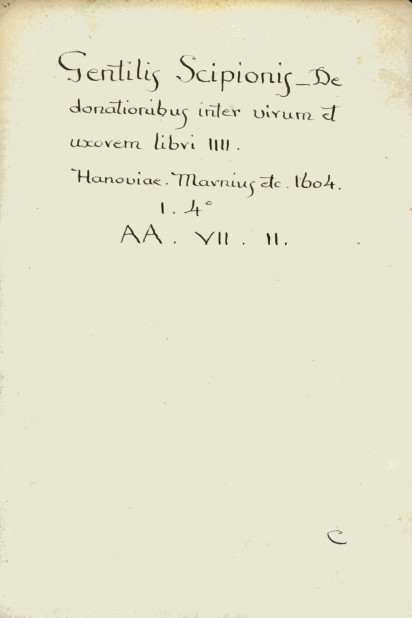 Gentilis Scipionis_De
donationibus inter virum et
uxorem libri IIII.
Hanoviae. Marnius etc. 1604.
1. 4°
AA. VII. II.
C